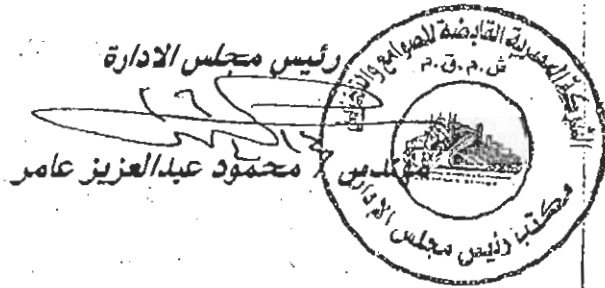 رئيس مجلس الادارة
مهندس / محمود عبدالعزيز عامر
الشركة المصرية القابضة للصوامع والتخزين
ش.م.ق.م
مكتب رئيس مجلس الإدارة